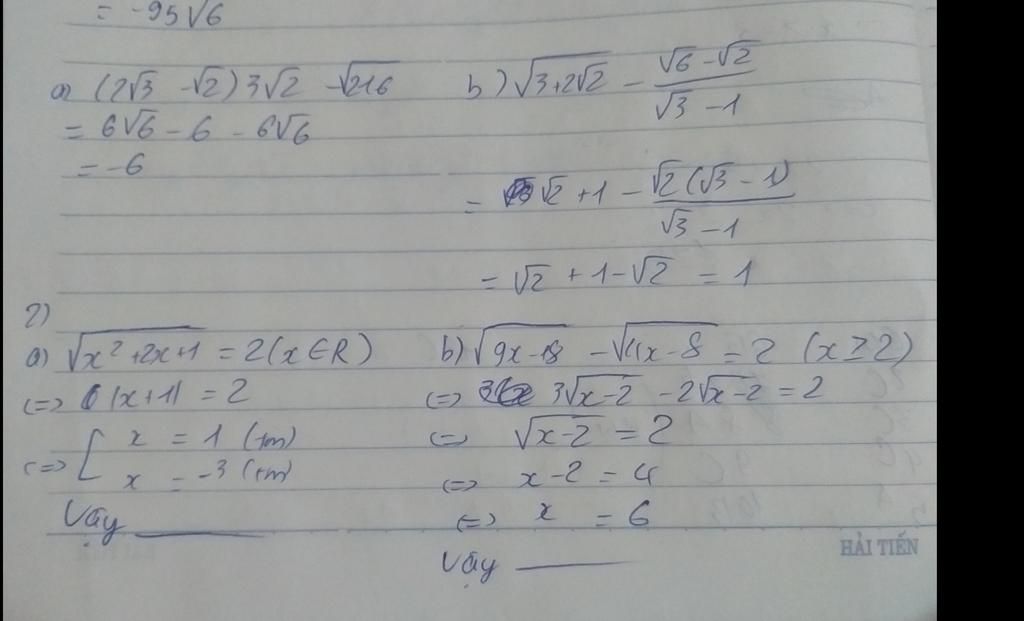 = -95√6
a) (2√3 - √2)3√2 - √216
= 6√6 - 6 - 6√6
= -6
b) √(3+2√2) - (√6 - √2)/(√3 - 1)
= √2 + 1 - √2(√3 - 1)/(√3 - 1)
= √2 + 1 - √2 = 1
2)
a) √(x² + 2x + 1) = 2 (x ∈ R)
<=> |x+1| = 2
<=> [ x = 1 (tm)
x = -3 (tm)
Vậy
b) √(9x-18) - √(4x-8) = 2 (x ≥ 2)
<=> 3√(x-2) - 2√(x-2) = 2
<=> √(x-2) = 2
<=> x-2 = 4
<=> x = 6
Vậy
HẢI TIẾN